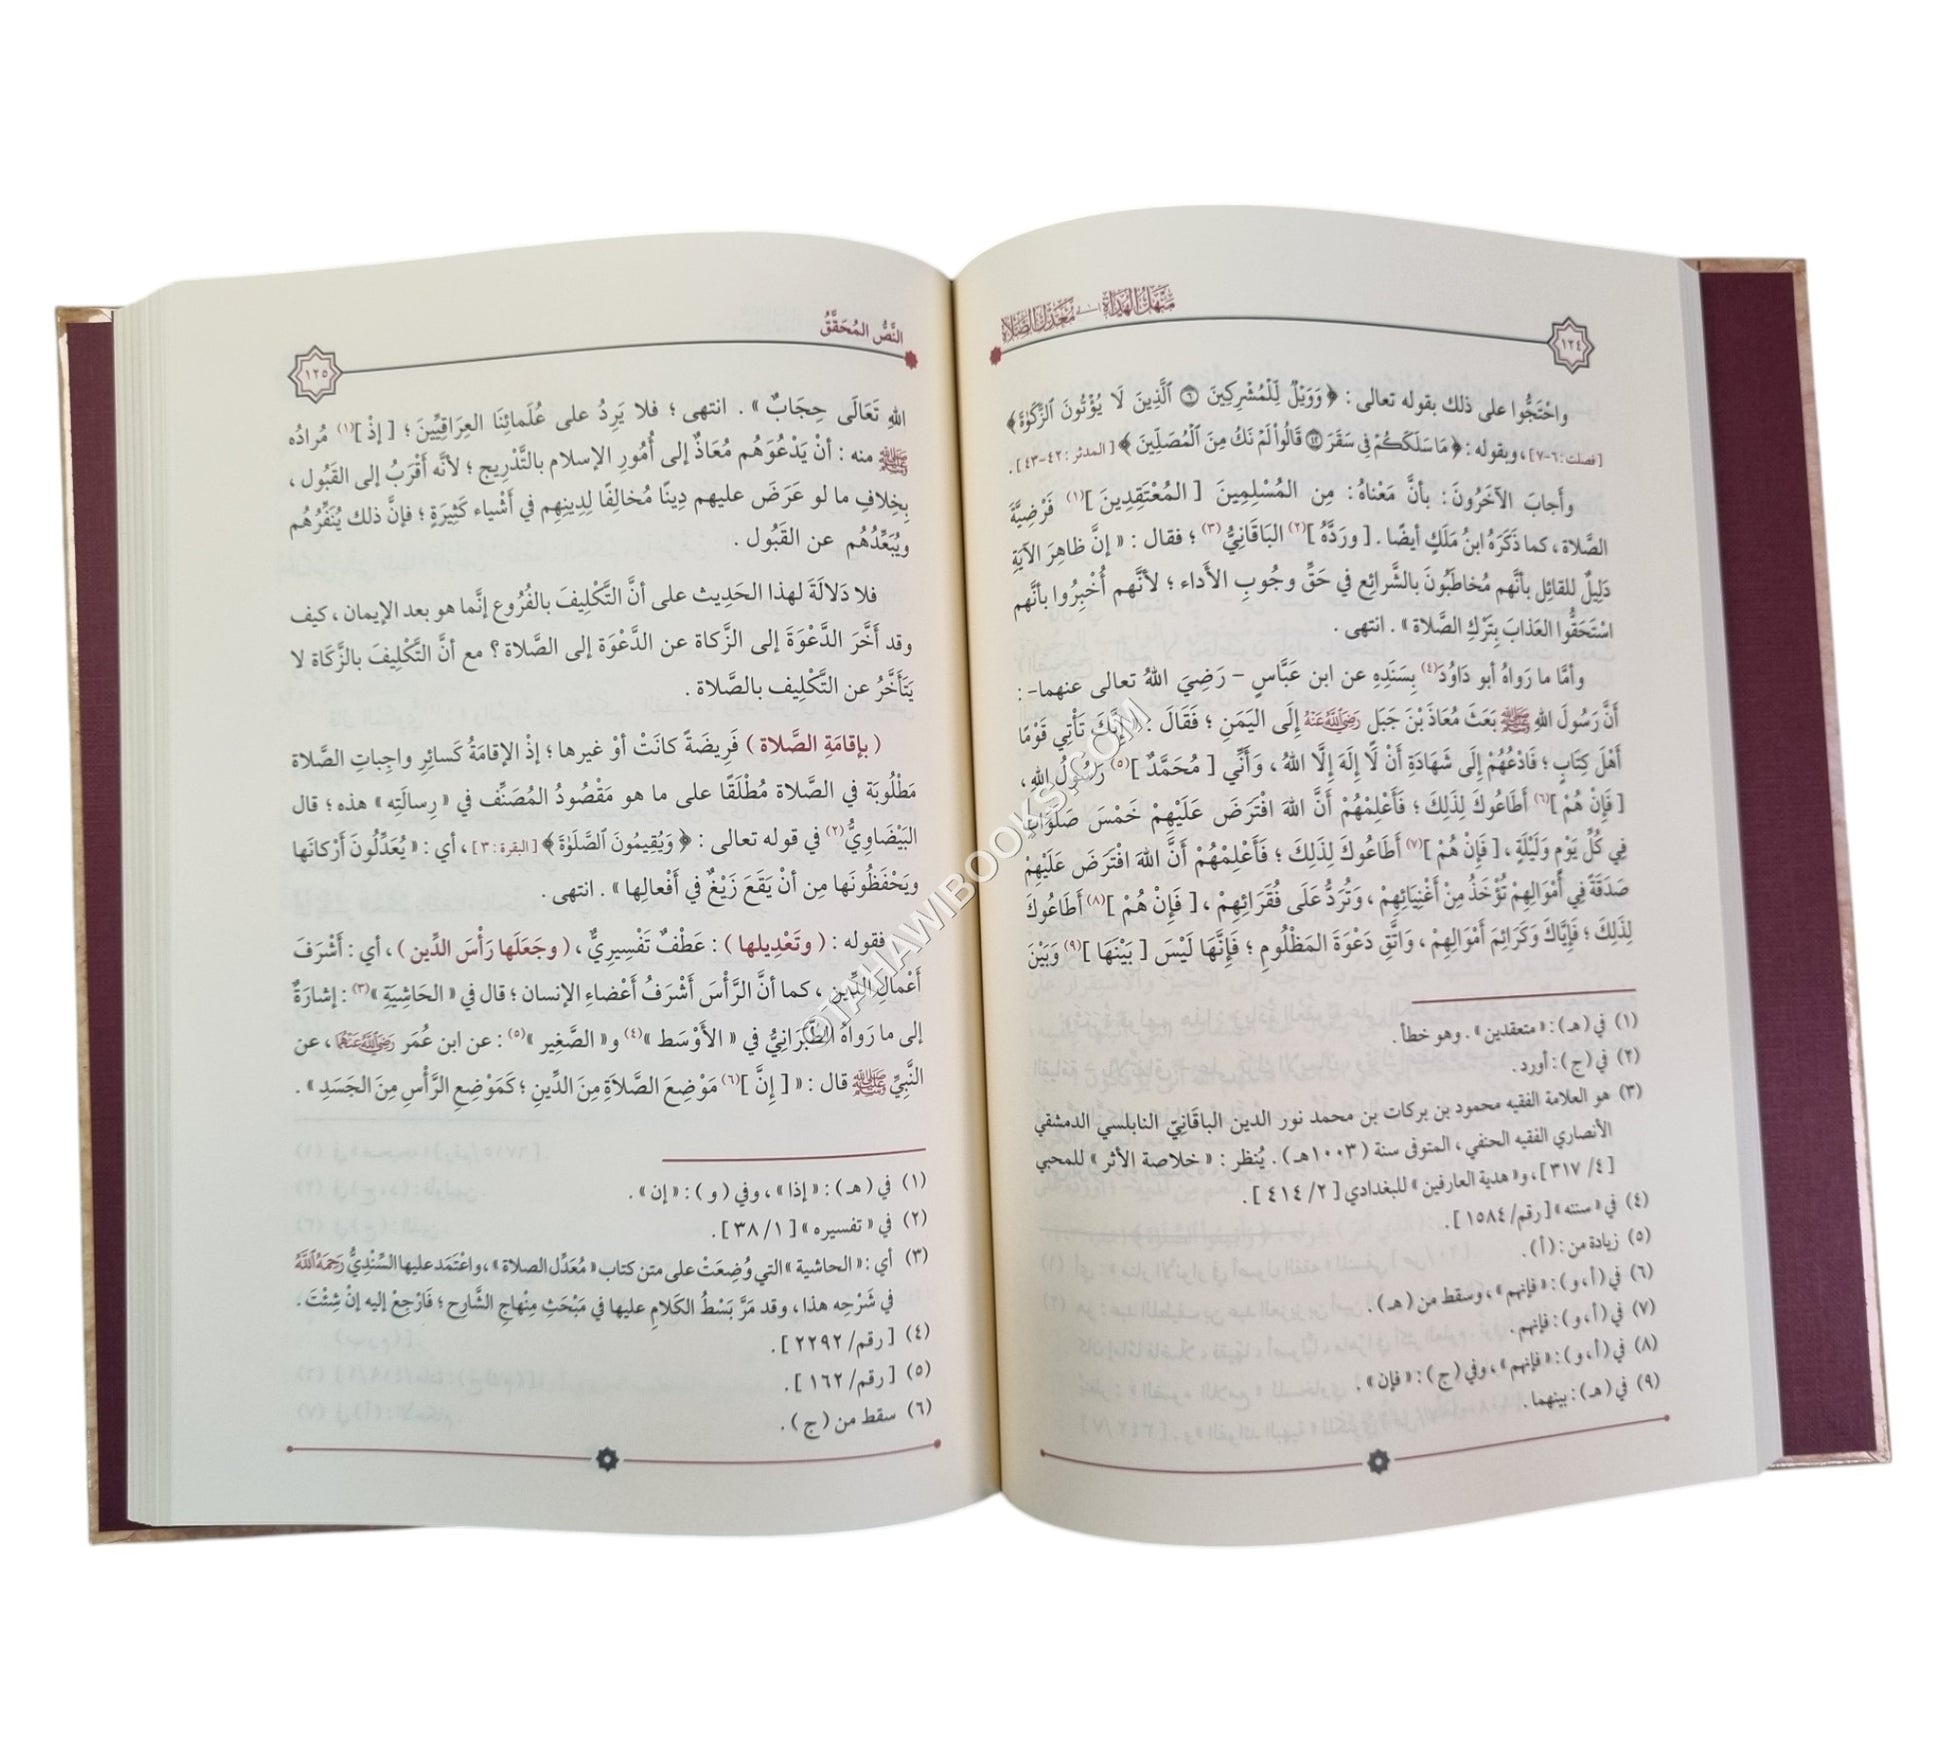 مَنْهَلُ الهُدَاةِ إلى مُعَدِّلِ الصَّلَاةِ
١٢٤
واحْتَجُّوا على ذلك بقوله تعالى : ﴿ وَوَيْلٌ لِّلْمُشْرِكِينَ ٦ ٱلَّذِينَ لَا يُؤْتُونَ ٱلزَّكَوٰةَ ﴾
[ فصلت : ٦-٧] ، وبقوله : ﴿ مَا سَلَكَكُمْ فِى سَقَرَ ٤٢ قَالُوا۟ لَمْ نَكُ مِنَ ٱلْمُصَلِّينَ ﴾ [ المدثر : ٤٢-٤٣] .
وأَجابَ الآخَرُونَ : بأنَّ مَعْناهُ : مِن المُسْلِمِينَ [ المُعْتَقِدِينَ ](١) فَرْضِيَّةَ
الصَّلاة ، كما ذَكَرَهُ ابنُ مَلَكٍ أيضًا . [ ورَدَّهُ ](٢) البَاقَانِيُّ(٣) ؛ فقال : « إنَّ ظاهِرَ الآيَةِ
دَلِيلٌ للقائِل بأنَّهم مُخاطَبُونَ بالشَّرائِع في حَقِّ وجُوبِ الأَداء ؛ لأنَّهم أُخْبِرُوا بأنَّهم
اسْتَحَقُّوا العَذابَ بِتَرْكِ الصَّلاة » . انتهى .
وأمَّا ما رَواهُ أبو دَاوُدَ(٤) بِسَنَدِهِ عن ابن عَبَّاسٍ – رَضِيَ اللهُ تعالى عنهما– :
أَنَّ رَسُولَ اللهِ ﷺ بَعَثَ مُعَاذَ بْنَ جَبَلٍ رَضِيَ اللهُ عَنْهُ إِلَى اليَمَنِ ؛ فَقَالَ : « إِنَّكَ تَأْتِي قَوْمًا
أَهْلَ كِتَابٍ ؛ فَادْعُهُمْ إِلَى شَهَادَةِ أَنْ لَّا إِلَهَ إِلَّا اللهُ ، وَأَنِّي [ مُحَمَّدٌ ](٥) رَسُولُ اللهِ ،
[ فَإِنْ هُمْ ](٦) أَطَاعُوكَ لِذَلِكَ ؛ فَأَعْلِمْهُمْ أَنَّ اللهَ افْتَرَضَ عَلَيْهِمْ خَمْسَ صَلَوَاتٍ
فِي كُلِّ يَوْمٍ وَلَيْلَةٍ ، [ فَإِنْ هُمْ ](٧) أَطَاعُوكَ لِذَلِكَ ؛ فَأَعْلِمْهُمْ أَنَّ اللهَ افْتَرَضَ عَلَيْهِمْ
صَدَقَةً فِي أَمْوَالِهِمْ تُؤْخَذُ مِنْ أَغْنِيَائِهِمْ ، وَتُرَدُّ عَلَى فُقَرَائِهِمْ ، [ فَإِنْ هُمْ ](٨) أَطَاعُوكَ
لِذَلِكَ ؛ فَإِيَّاكَ وَكَرَائِمَ أَمْوَالِهِمْ ، وَاتَّقِ دَعْوَةَ المَظْلُومِ ؛ فَإِنَّهَا لَيْسَ [ بَيْنَهَا ](٩) وَبَيْنَ
(١) في ( هـ ) : « متعقدين » . وهو خطأ .
(٢) في ( ج ) : أورد .
(٣) هو العلامة الفقيه محمود بن بركات بن محمد نور الدين الباقَانِيّ النابلسي الدمشقي
الأنصاري الفقيه الحنفي ، المتوفى سنة ( ١٠٠٣هـ ) . يُنظر : « خلاصة الأثر » للمحبي
[ ٤/ ٣١٧ ] ، و« هدية العارفين » للبغدادي [ ٢/ ٤١٤ ] .
(٤) في « سننه » [ رقم/ ١٥٨٤ ] .
(٥) زيادة من : ( أ ) .
(٦) في ( أ ، و ) : « فإنهم » ، وسقط من ( هـ ) .
(٧) في ( أ ، و ) : فإنهم .
(٨) في ( أ ، و ) : « فإنهم » ، وفي ( ج ) : « فإن » .
(٩) في ( هـ ) : بينهما .
النَّصُّ المُحَقَّقُ
١٢٥
اللهِ تَعَالَى حِجَابٌ » . انتهى ؛ فلا يَرِدُ على عُلَمائِنَا العِرَاقِيِّينَ ؛ [ إذْ ](١) مُرادُه
ﷺ منه : أنْ يَدْعُوَهُم مُعَاذٌ إلى أُمُورِ الإسلام بالتَّدْرِيج ؛ لأنَّه أَقْرَبُ إلى القَبُول ،
بِخِلافِ ما لو عَرَضَ عليهم دِينًا مُخالِفًا لِدِينِهِم في أَشْياء كَثِيرَةٍ ؛ فإنَّ ذلك يُنَفِّرُهُم
ويُبَعِّدُهُم عن القَبُول .
فلا دَلالَةَ لهذا الحَدِيث على أنَّ التَّكْلِيفَ بالفُرُوع إنَّما هو بعد الإيمان ، كيف
وقد أَخَّرَ الدَّعْوَةَ إلى الزَّكاة عن الدَّعْوَة إلى الصَّلاة ؟ مع أنَّ التَّكْلِيفَ بالزَّكَاة لا
يَتَأَخَّرُ عن التَّكْلِيف بالصَّلاة .
( بإقامَةِ الصَّلاة ) فَرِيضَةً كانَتْ أوْ غيرها ؛ إذْ الإقامَةُ كَسائِرِ واجِباتِ الصَّلاة
مَطْلُوبَة في الصَّلاة مُطْلَقًا على ما هو مَقْصُودُ المُصَنِّف في « رِسالَتِه » هذه ؛ قال
البَيْضَاوِيُّ(٢) في قوله تعالى : ﴿ وَيُقِيمُونَ ٱلصَّلَوٰةَ ﴾ [ البقرة : ٣ ] ، أي : « يُعَدِّلُونَ أَرْكانَها
ويَحْفَظُونَها مِن أنْ يَقَعَ زَيْغٌ في أَفْعالِها » . انتهى .
فقوله : ( وتَعْدِيلها ) : عَطْفٌ تَفْسِيرِيٌّ ، ( وجَعَلَها رَأْسَ الدِّين ) ، أي : أَشْرَفَ
أَعْمالِ الدِّين ، كما أنَّ الرَّأْسَ أَشْرَفُ أَعْضاءِ الإنسان ؛ قال في « الحَاشِيَةِ »(٣) : إشارَةٌ
إلى ما رَواهُ الطَّبَرَانِيُّ في « الأَوْسَط »(٤) و« الصَّغِير »(٥) : عن ابن عُمَر رَضِيَ اللهُ عَنْهُمَا ، عن
النَّبِيِّ ﷺ قال : « [ إِنَّ ](٦) مَوْضِعَ الصَّلاَةِ مِنَ الدِّينِ ؛ كَمَوْضِعِ الرَّأْسِ مِنَ الجَسَدِ » .
(١) في ( هـ ) : « إذا » ، وفي ( و ) : « إن » .
(٢) في « تفسيره » [ ١/ ٣٨ ] .
(٣) أي : « الحاشية » التي وُضِعَتْ على متن كتاب « مُعَدِّل الصلاة » ، واعْتَمَد عليها السِّنْدِيُّ رَحِمَهُ اللهُ
في شَرْحِه هذا ، وقد مَرَّ بَسْطُ الكَلامِ عليها في مَبْحَثِ مِنْهاجِ الشَّارِح ؛ فَارْجِعْ إليه إنْ شِئْتَ .
(٤) [ رقم/ ٢٢٩٢ ] .
(٥) [ رقم/ ١٦٢ ] .
(٦) سقط من ( ج ) .
©TAHAWIBOOKS.COM